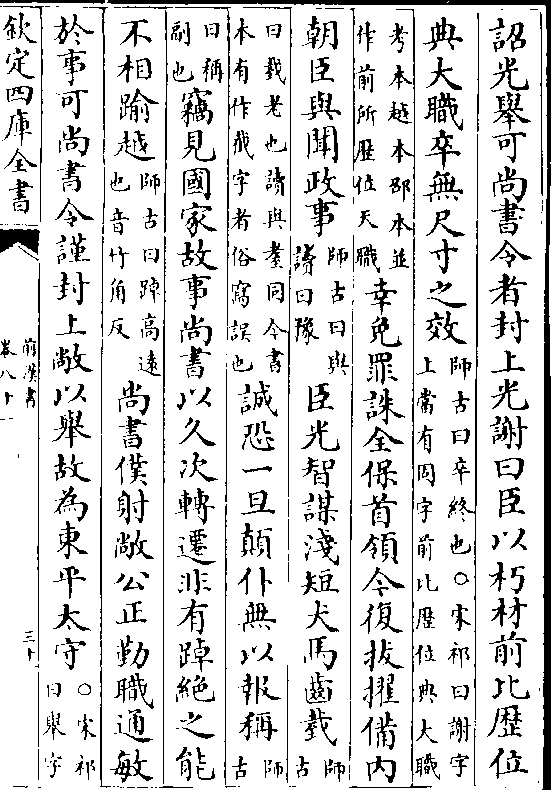 詔光舉可尚書令者封上光謝曰臣以朽材前比歴位
典大職卒無尺寸之效師古曰卒終也○宋祁曰謝字上當有因字前比歴位典大職
考本越本邵本並作前所歴位天職幸免罪誅全保首領今復拔擢備内
朝臣與聞政事師古曰與讀曰豫臣光智謀淺短犬馬齒臷師古
曰臷老也讀與耋同今書本有作截字者俗寫誤也誠恐一旦顛仆無以報稱師古
曰稱副也竊見國家故事尚書以久次轉遷非有踔絶之能
不相踰越師古曰踔高逺也音竹角反尚書僕射敞公正勤職通敏
於事可尚書令謹封上敞以舉故為東平太守○宋祁曰舉字
欽定四庫全書
前漢書
卷八十一
三十